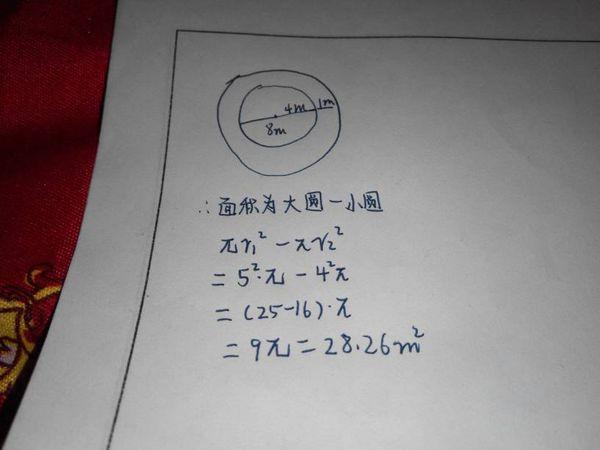 4m 1m
8m
∴面积为大圆-小圆
πr₁²-πr₂²
=5²·π-4²π
=(25-16)·π
=9π=28.26m²